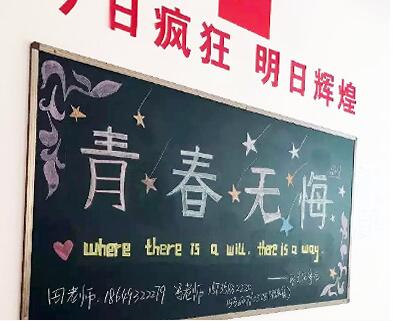 今日疯狂 明日辉煌
青春无悔
where there is a will, there is a way.
田老师. 18649322279